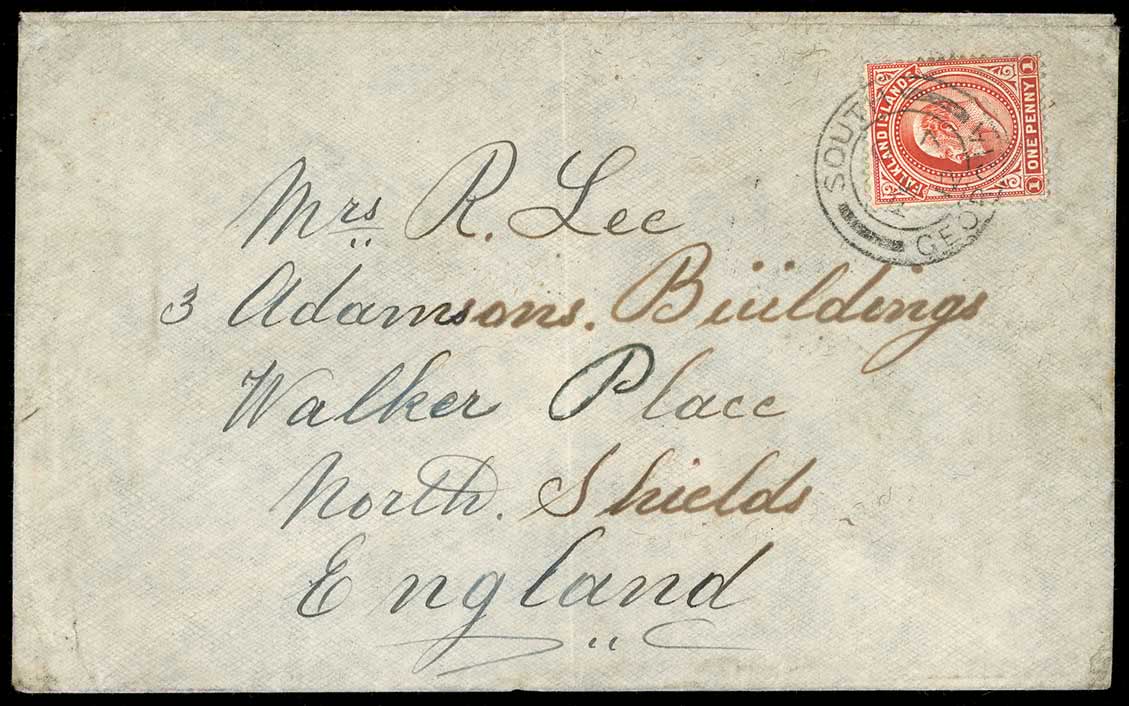 FALKLAND ISLANDS
1 ONE PENNY 1
SOUTH
GEO
Mrs R. Lee
3 Adamsons. Buildings
Walker Place
North. Shields
England